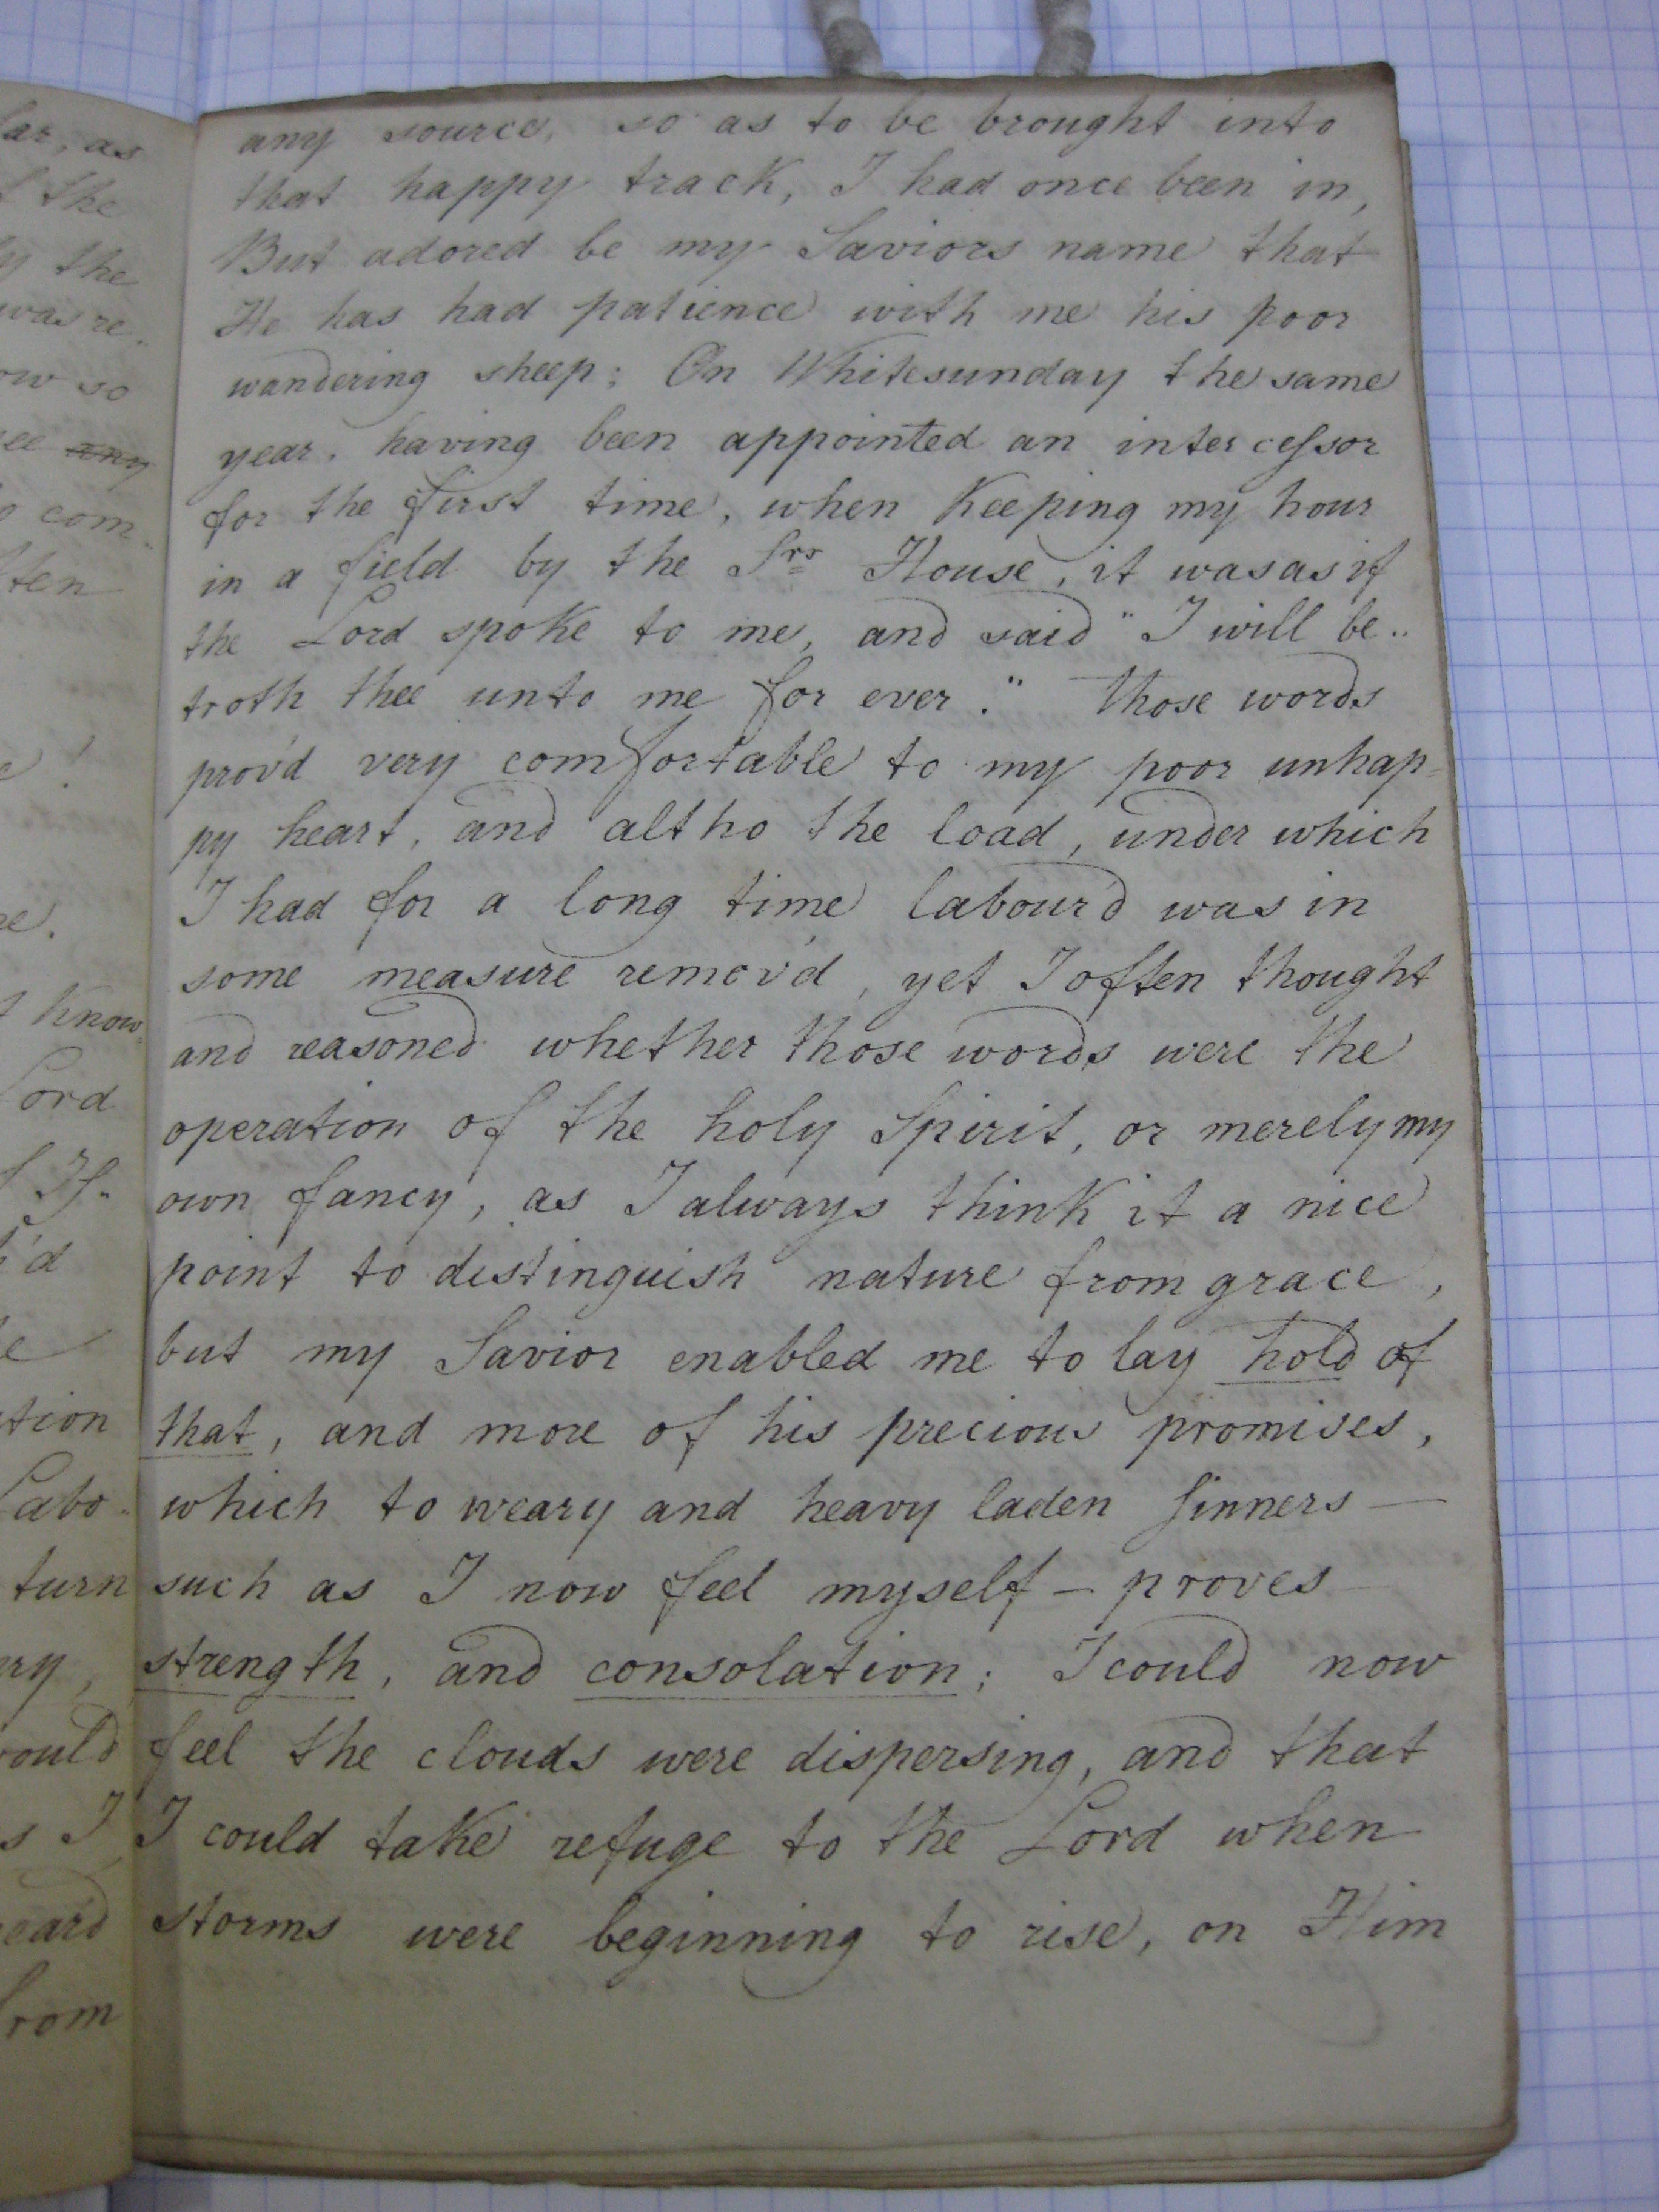 any source, so as to be brought into
that happy track, I had once been in,
But adored be my Saviors name that
He has had patience with me his poor
wandering sheep; On Whitesunday the same
year, having been appointed an intercessor
for the first time, when Keeping my hour
in a field by the Srs House, it was as if
the Lord spoke to me, and said "I will be..
troth thee unto me for ever." those words
prov'd very comfortable to my poor unhap=
py heart, and altho the load, under which
I had for a long time labour'd was in
some measure remov'd, yet I often thought
and reasoned whether those words were the
operation of the holy Spirit, or merely my
own fancy, as I always think it a nice
point to distinguish nature from grace,
but my Savior enabled me to lay hold of
that, and more of his precious promises,
which to weary and heavy laden Sinners —
such as I now feel myself — proves
strength, and consolation; I could now
feel the clouds were dispersing, and that
I could take refuge to the Lord when
storms were beginning to rise, on Him